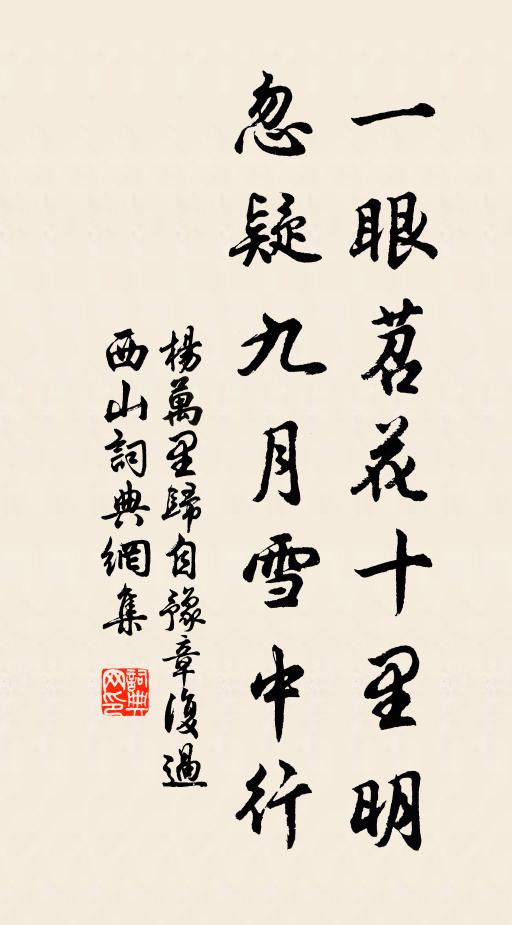 一眼苕花十里明
忽疑九月雪中行
楊萬里歸自豫章復過
西山詞典網集
詞典
网印